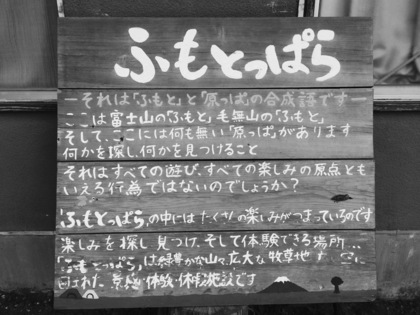 ふもとっぱら
ーそれは「ふもと」と「原っぱ」の合成語ですー
ここは富士山の「ふもと」毛無山の「ふもと」
そして、ここには何も無い「原っぱ」があります
何かを探し、何かを見つけること
それはすべての遊び、すべての楽しみの原点とも
いえる行為ではないのでしょうか?
「ふもとっぱら」の中にはたくさんの楽しみがつまっているのです
楽しみを探し 見つけ、そして体験できる場所...
「ふもとっぱら」は緑豊かな山々、広大な牧草地
まれた 体験・休憩施設です